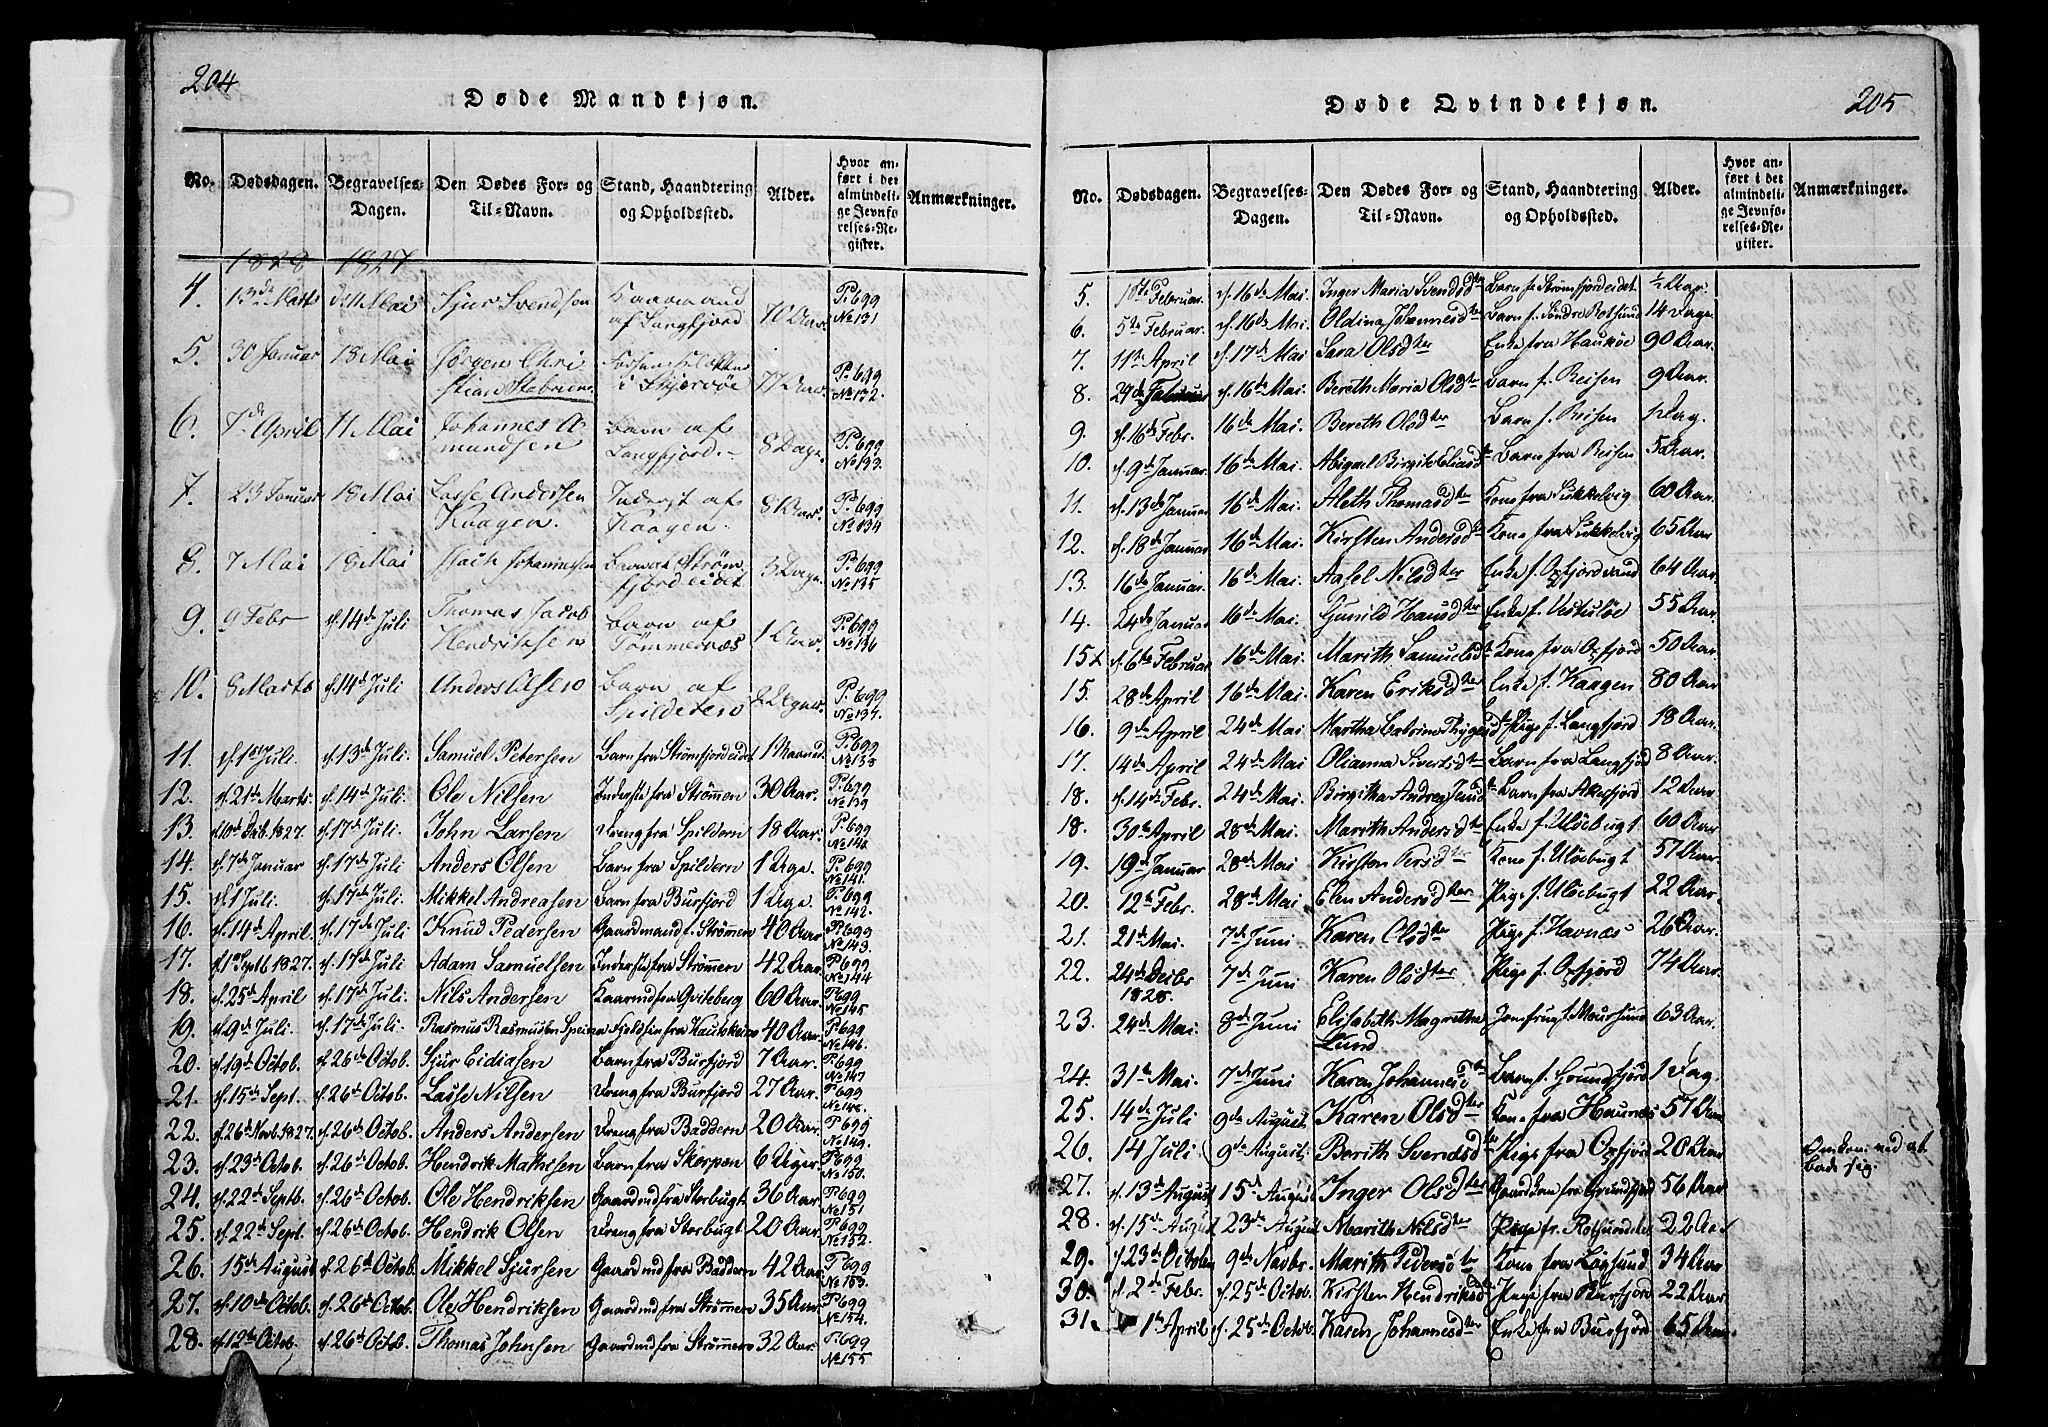 204
Døde Mandkjøn.
No. Dødsdagen. Begravelses-Dagen. Den Dødes For- og Til-Navn. Stand, Haandtering og Opholdssted. Alder. Hvor anført i det almindelige Jevnførelses-Register. Anmærkninger.
1828 1827
4. 13de Marts d. 11 Mai Sjur Svendsen Kaarmand af Langfjord 70 Aar P. 699 No 131
5. 30 Januar 18 Mai Jørgen Christian i Skjervøe 77 Aar P. 699 No 132.
6. 7de April 11 Mai Johannes Amundsen Barn af Langfjord. 8 Dage. P. 699 No 133.
7. 23 Januar 18 Mai Lasse Andersen Kaagen. Inderst af Kaagen. 8 Aar. P. 699 No 134
8. 7 Mai 18 Mai Johannessen Barn af Strømfjordeidet 3 Dage. P. 699 No 135
9. 9 Febr d. 14de Juli Thomas Jacob Hendriksen Barn af Tømmernæs 1 Aar. P. 699 No 136
10. 8 Marts d. 14de Juli Anders Olsen Barn af Spilderen 2 Uger. P. 699 No 137.
11. d. 1st Juli. d. 13de Juli. Samuel Petersen Barn fra Strømfjordeidet 1 Maaned. P. 699 No 138
12. d. 21de Marts. d. 14de Juli. Ole Nilsen Inderst fra Strømmen 30 Aar. P. 699 No 139
13. d. 10de 1827. d. 17de Juli. John Larsen Dreng fra Spildern 18 Aar. P. 699 No 140.
14. d. 7de Januar d. 17de Juli Anders Olsen Barn fra Spildern 1 Uge. P. 699 No 141.
15. d. 1 Juli. d. 17de Juli. Mikkel Andreasen Barn fra Burfjord 1 Uge. P. 699 No 142.
16. d. 14de April. d. 17de Juli Knud Pedersen Gaardmand f. Strømmen 40 Aar P. 699 No 143.
17. d. 1ste Septb 1827. d. 17de Juli Adam Samuelsen Inderst fra Strømmen 42 Aar. P. 699 No 144
18. d. 25de April d. 17de Juli. Nils Andersen Kaarmd fra Qviteberg 60 Aar. P. 699 No 145
19. d. 9de Juli. d. 17de Juli. Rasmus Rasmusen Spein Fjeldfin fra Kautokeino 40 Aar. P. 699 No 146.
20. d. 19de Octob. d. 26de Octob. Sjur Eidiasen Barn fra Burfjord 7 Aar. P. 699 No 147
21. d. 15de Sept. d. 26de Octob. Lasse Nilsen Dreng fra Burfjord 27 Aar. P. 699 No 148.
22. d. 26de Novb 1827. d. 26de Octob. Anders Andersen Dreng fra Baddern 20 Aar. P. 699 No 149.
23. d. 23de Octob. d. 26de Octob. Hendrik Mathisen Barn fra Skorpen 6 Uger. P. 699 No 150.
24. d. 22de Septb. d. 26de Octob. Ole Hendriksen Gaardmd fra Storbugt 36 Aar P. 699 No 151
25. d. 22de Sept. d. 26de Octob. Hendrik Olsen Dreng fra Storbugt 20 Aar. P. 699 No 152.
26. 15de August d. 26de Octob. Mikkel Sjursen Gaardmd fra Baddern 42 Aar. P. 699 No 153.
27. d. 10de Octob. d. 26de Octob. Ole Hendriksen Gaardmd fra Strømmen 35 Aar. P. 699 No 154.
28. d. 12te Octob. d. 26de Octob. Thomas Johnsen Gaardmd fra Strømmen 32 Aar. P. 699 No 155
205
Døde Qvindekjøn.
No. Dødsdagen. Begravelses-Dagen. Den Dødes For- og Til-Navn. Stand, Haandtering og Opholdssted. Alder. Hvor anført i det almindelige Jevnførelses-Register. Anmærkninger.
5. Februar. d. 16de Mai. Inger Maria Svendsdter Barn f. Strømfjordeidet ½ Aar.
6. 5te Februar. d. 16de Mai. Oldina Johannesdter Barn f. Søndre Rotsund 14 Dage.
7. 11te April d. 17de Mai Sara Olsdter Enke fra Haukøe 90 Aar.
8. 27de Februar d. 16de Mai. Bereth Maria Olsdter Barn f. Reisen 9 Aar.
9. d. 16de Febr. 16de Mai. Bereth Olsdter Barn f. Reisen 1 Dag.
10. d. 9de Januar. 16de Mai. Abigael Birgite Eliasdter Barn fra Reisen 5 Aar.
11. d. 13de Januar 16de Mai. Aleth Thomasdter Kone fra Sukkelvig 60 Aar.
12. d. 18de Januar 16de Mai. Kirsten Andersdter Kone fra Sukkelvig 65 Aar
13. 16de Januar 16de Mai. Aasel Nilsdter Enke f. Oxfjordvand 64 Aar.
14. 24de Januar 16de Mai. Gunild Hansdter Enke f. 55 Aar.
15 d. 6te Februar 16de Mai. Marith Samuelsdter Kone fra Oxfjord 50 Aar.
15. 28de April 16de Mai. Karen Eriksdter Enke f. Kaagen 80 Aar
16. 9de April 24de Mai Martha Catrina Pige f. Langfjord 18 Aar.
17. 14de April 24de Mai Olianna Sivertsdter Barn fra Langfjord 8 Aar.
18. d. 14de Febr. 24de Mai. Birgitha Barn fra 12 Aar
18. 30te April 28de Mai. Marith Andersdter Enke f. Uløebugt 60 Aar
19. 19de Januar 28de Mai Kirsten Persdter Kone f. Uløebugt 57 Aar
20. 12te Febr. 28de Mai Elen Andersdter Pige f. Uløebugt 22 Aar
21. 21de Mai. 7de Juni Karen Olsdter Pige f. Havnæs 26 Aar.
22. 24de Decbr 1828. 7de Juni Karen Olsdter Pige f. Oxfjord 74 Aar.
23. 24de Mai. 8de Juni Elisabeth Magretha Lund Jomfru f. Maursund 63 Aar.
24. 31te Mai. 7de Juni Karen Johannesdter Barn f. Grundfjord 1 Dag.
25. 14de Juli 9de August Karen Olsdter Kone fra Havnæs 57 Aar
26. 14 Juli 9de August Berith Svendsdter Pige fra Oxfjord 28 Aar Omkom ved at bade sig.
27. d. 13de August 15de August Inger Olsdter Gaardkone fra Grundfjord 56 Aar
28. d. 15de August 23de August Marith Nilsdter Pige fr. Rotsund 22 Aar
29. d. 23de October 9de Novbr. Marith Pedersdter Kone fra Løgsund 34 Aar
30. d. 2de Febr. d. 25de Octob. Kirsten Hendriksdter Pige fra Burfjord 22 Aar
31. 1te April d. 25de Octob. Karen Johannesdter Enke fra Burfjord 65 Aar